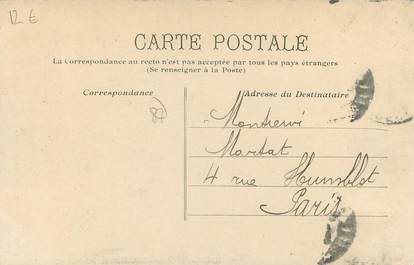 12 €
CARTE POSTALE
La Correspondance au recto n'est pas acceptée par tous les pays étrangers
(Se renseigner à la Poste)
Correspondance
Adresse du Destinataire
Martat
4 rue Humblot
Paris